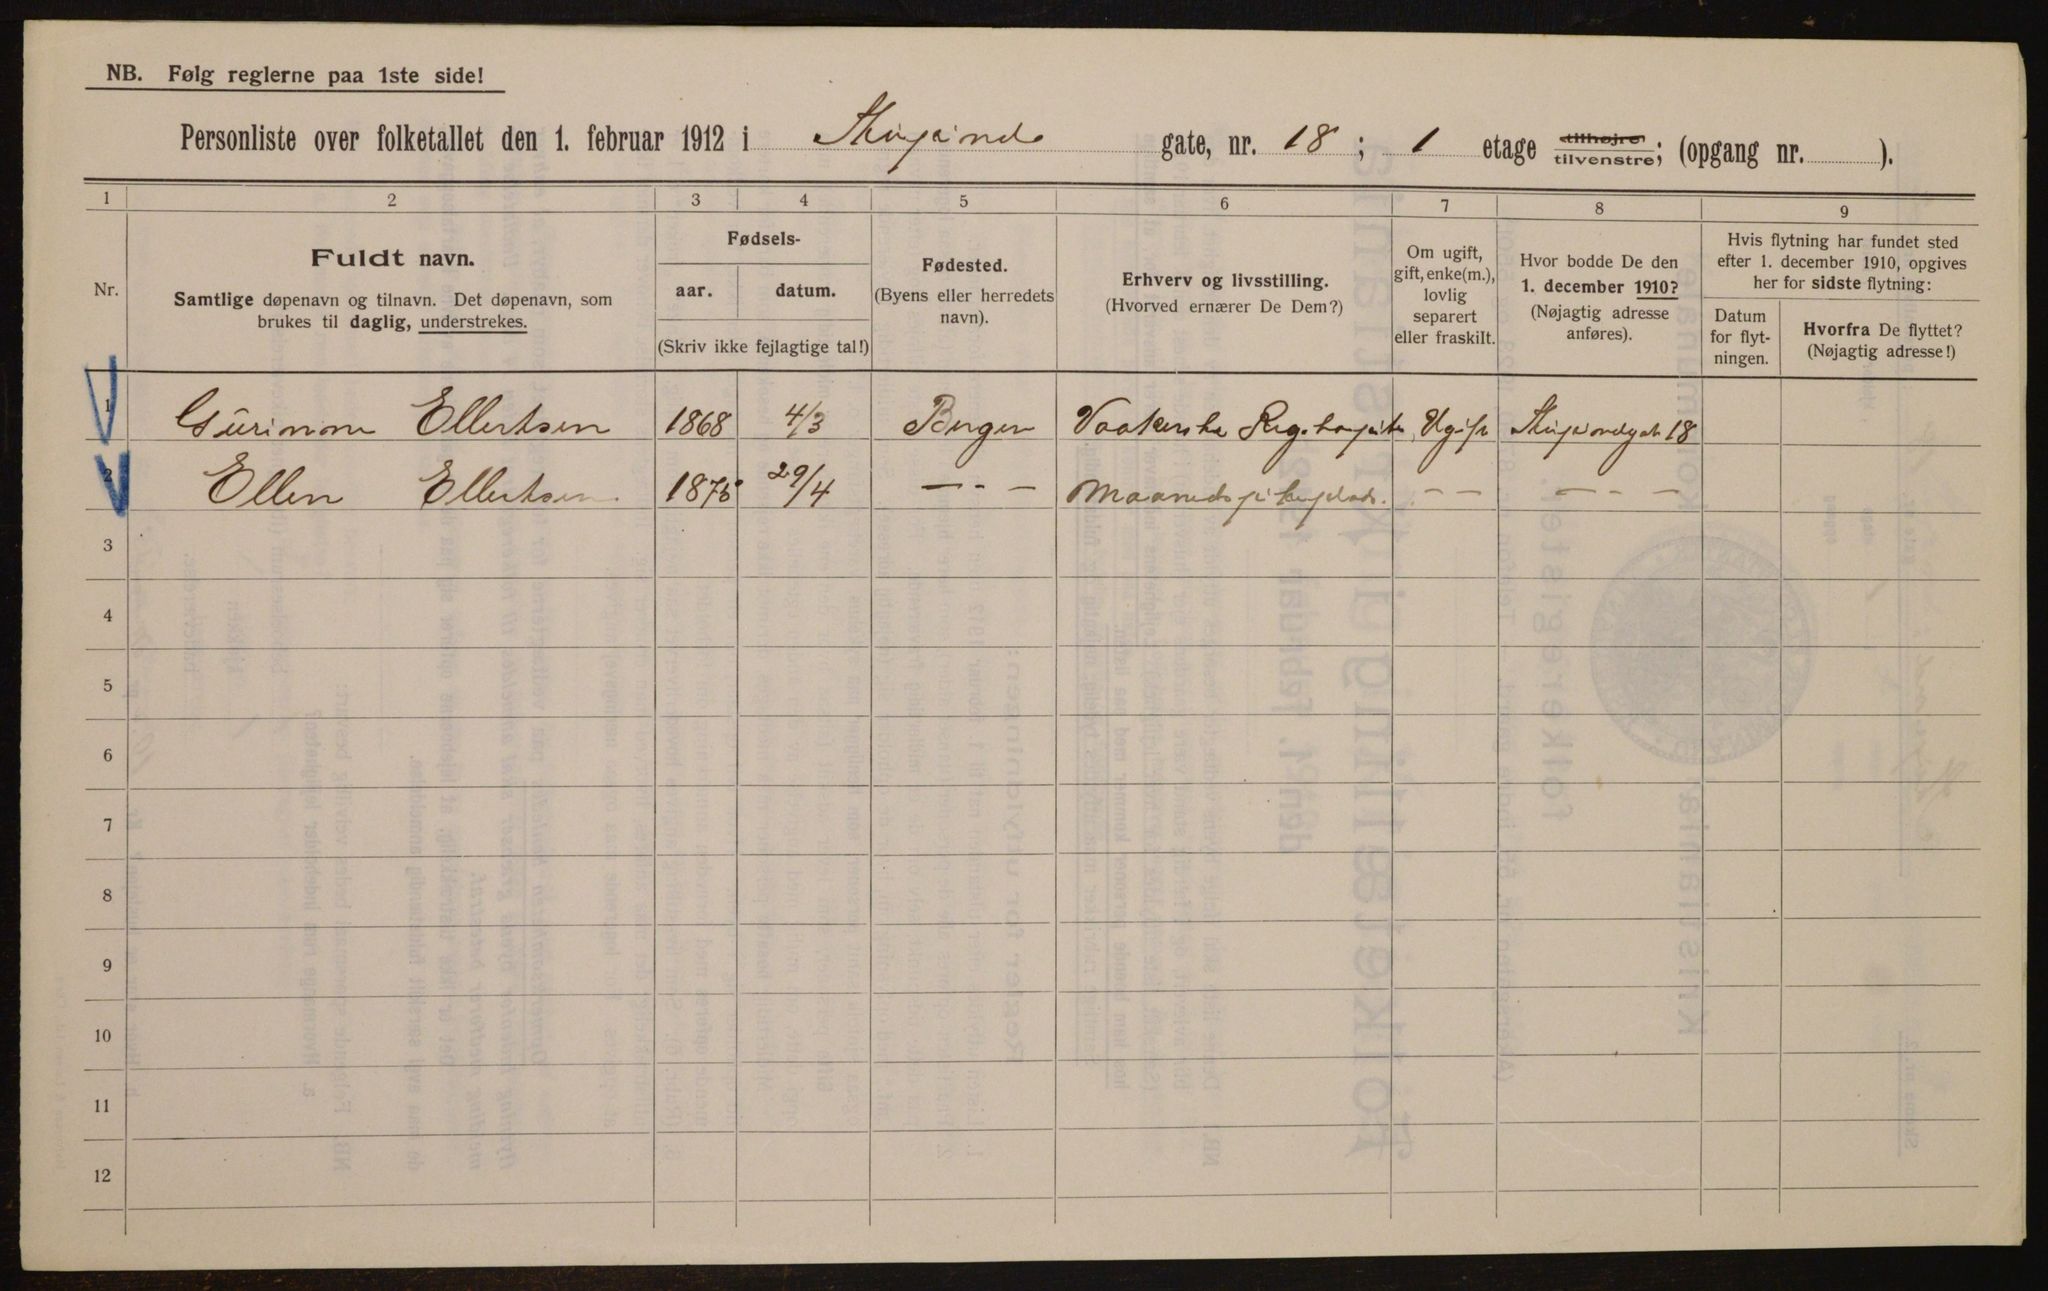 NB. Følg reglerne paa 1ste side!
Personliste over folketallet den 1. februar 1912 i gate, nr. 18 ; 1 etage tilhøjre tilvenstre; (opgang nr. ).
1 2 3 4 5 6 7 8 9
Nr.
Fuldt navn.
Samtlige døpenavn og tilnavn. Det døpenavn, som
brukes til daglig, understrekes.
Fødsels-
aar. datum.
(Skriv ikke fejlagtige tal!)
Fødested.
(Byens eller herredets
navn).
Erhverv og livsstilling.
(Hvorved ernærer De Dem?)
Om ugift,
gift, enke(m.),
lovlig
separert
eller fraskilt.
Hvor bodde De den
1. december 1910?
(Nøjagtig adresse
anføres).
Hvis flytning har fundet sted
efter 1. december 1910, opgives
her for sidste flytning:
Datum
for flyt-
ningen.
Hvorfra De flyttet?
(Nøjagtig adresse!)
1 Ellertsen 1868 4/3 Bergen Ugift 18
2 Ellen Ellertsen 1875 29/4 – - – – – – - –
3
4
5
6
7
8
9
10
11
12